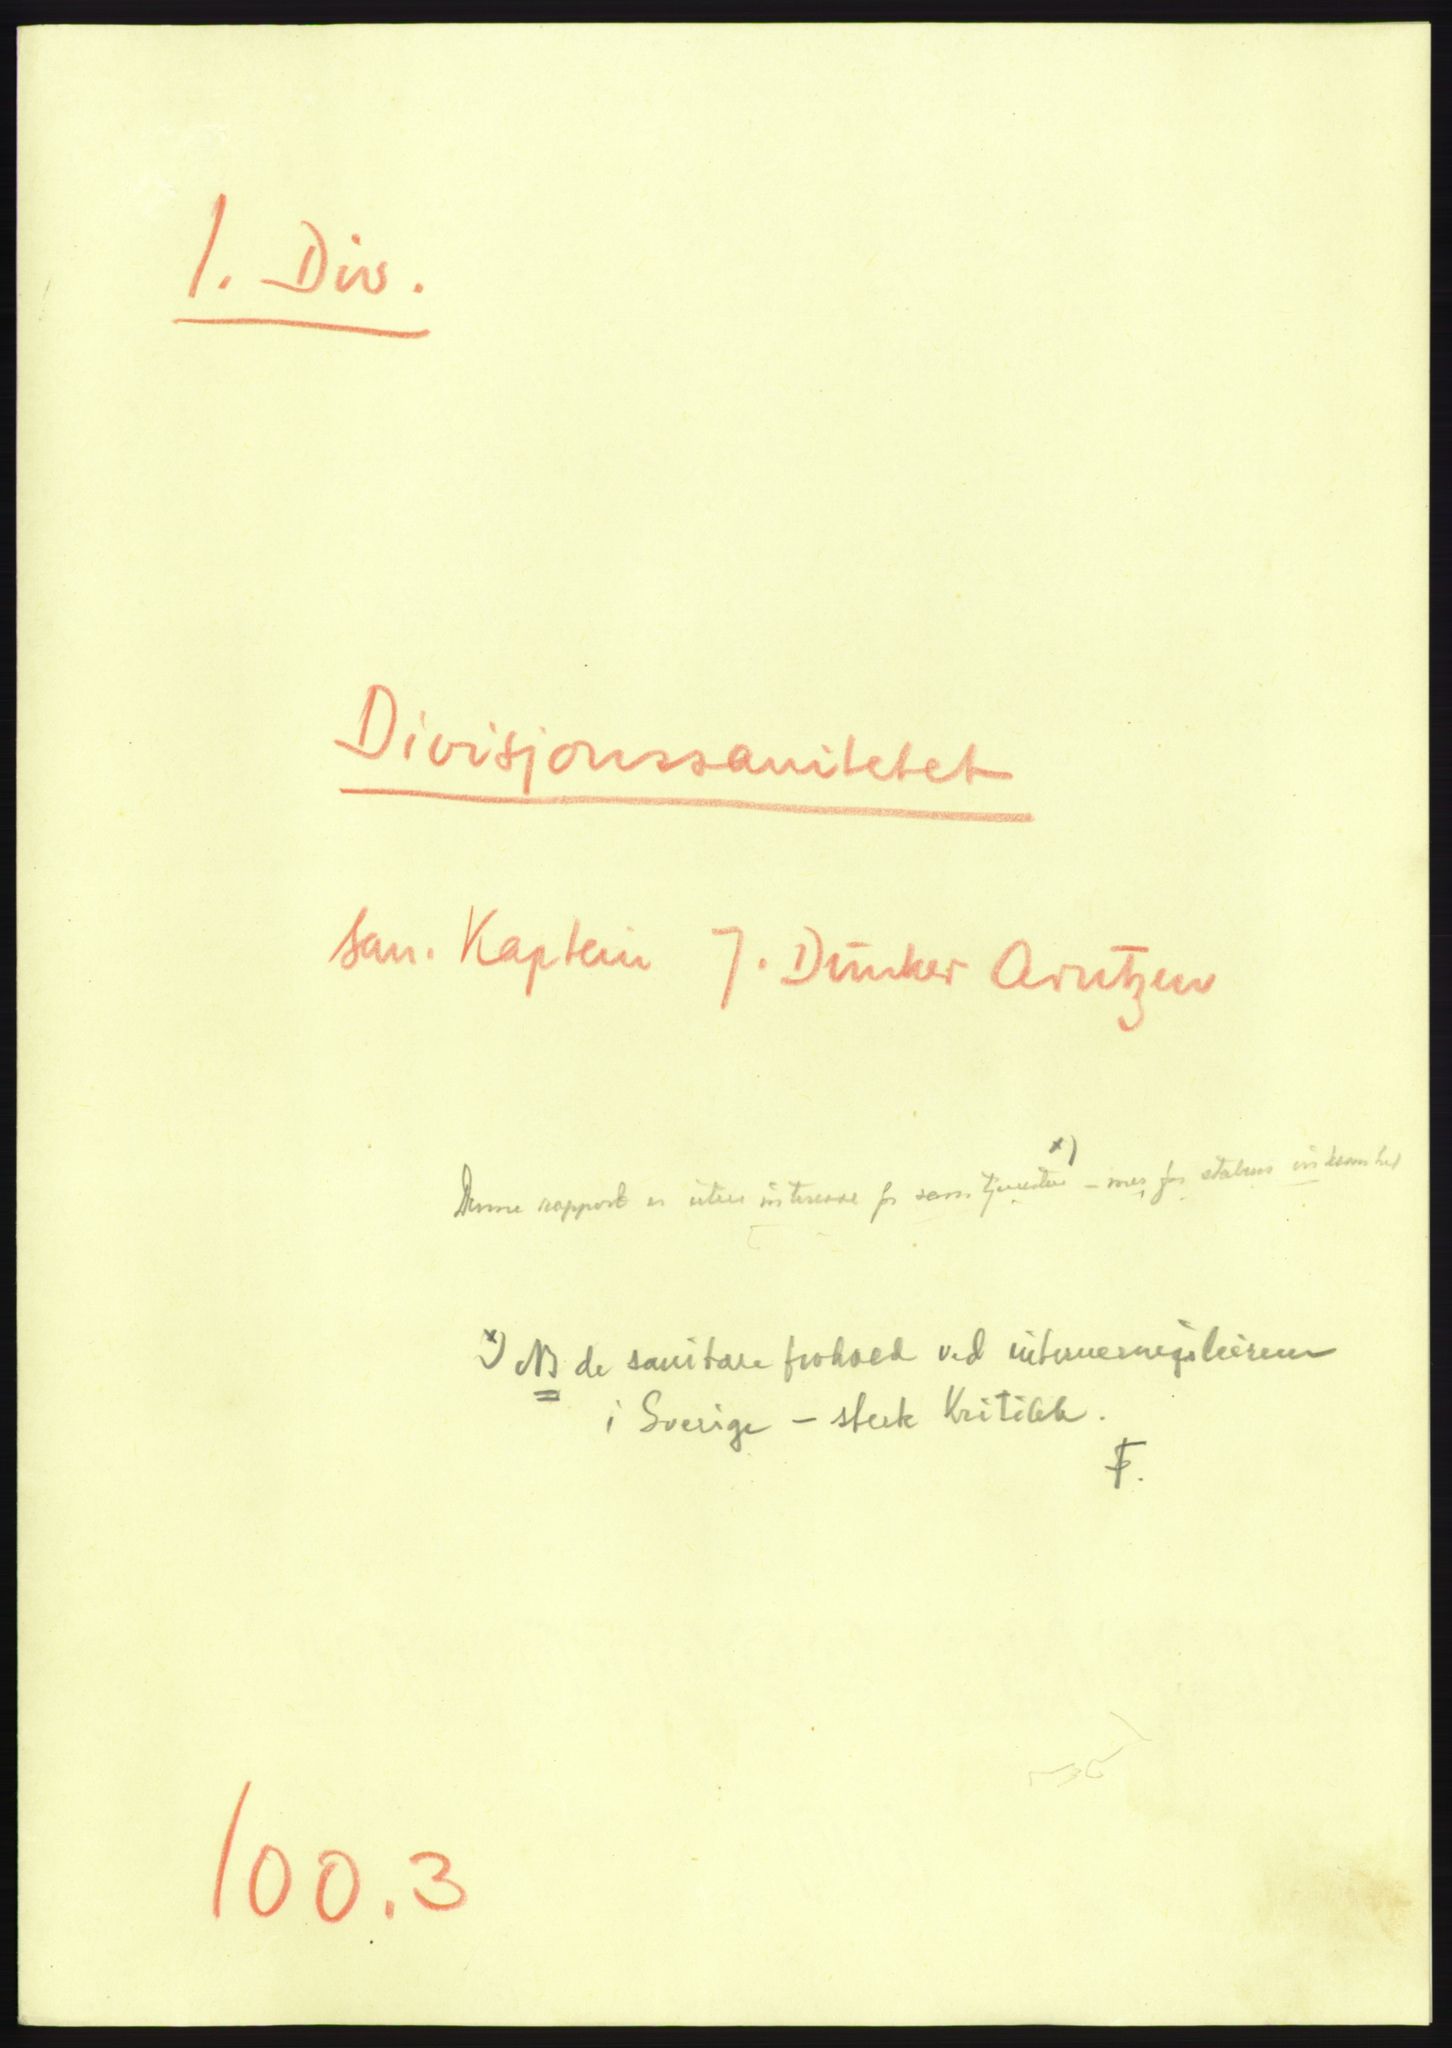 1. Div.
Divisjonssanitetet
san. Kaptein J. Dunker Arntzen
x)
Denne rapport er uten interesse for sani tjenesten – mer for stabens virksomhet
x) NB de sanitære forhold ved interneringsleirene
i Sverige – sterk Kritikk.
F.
100.3